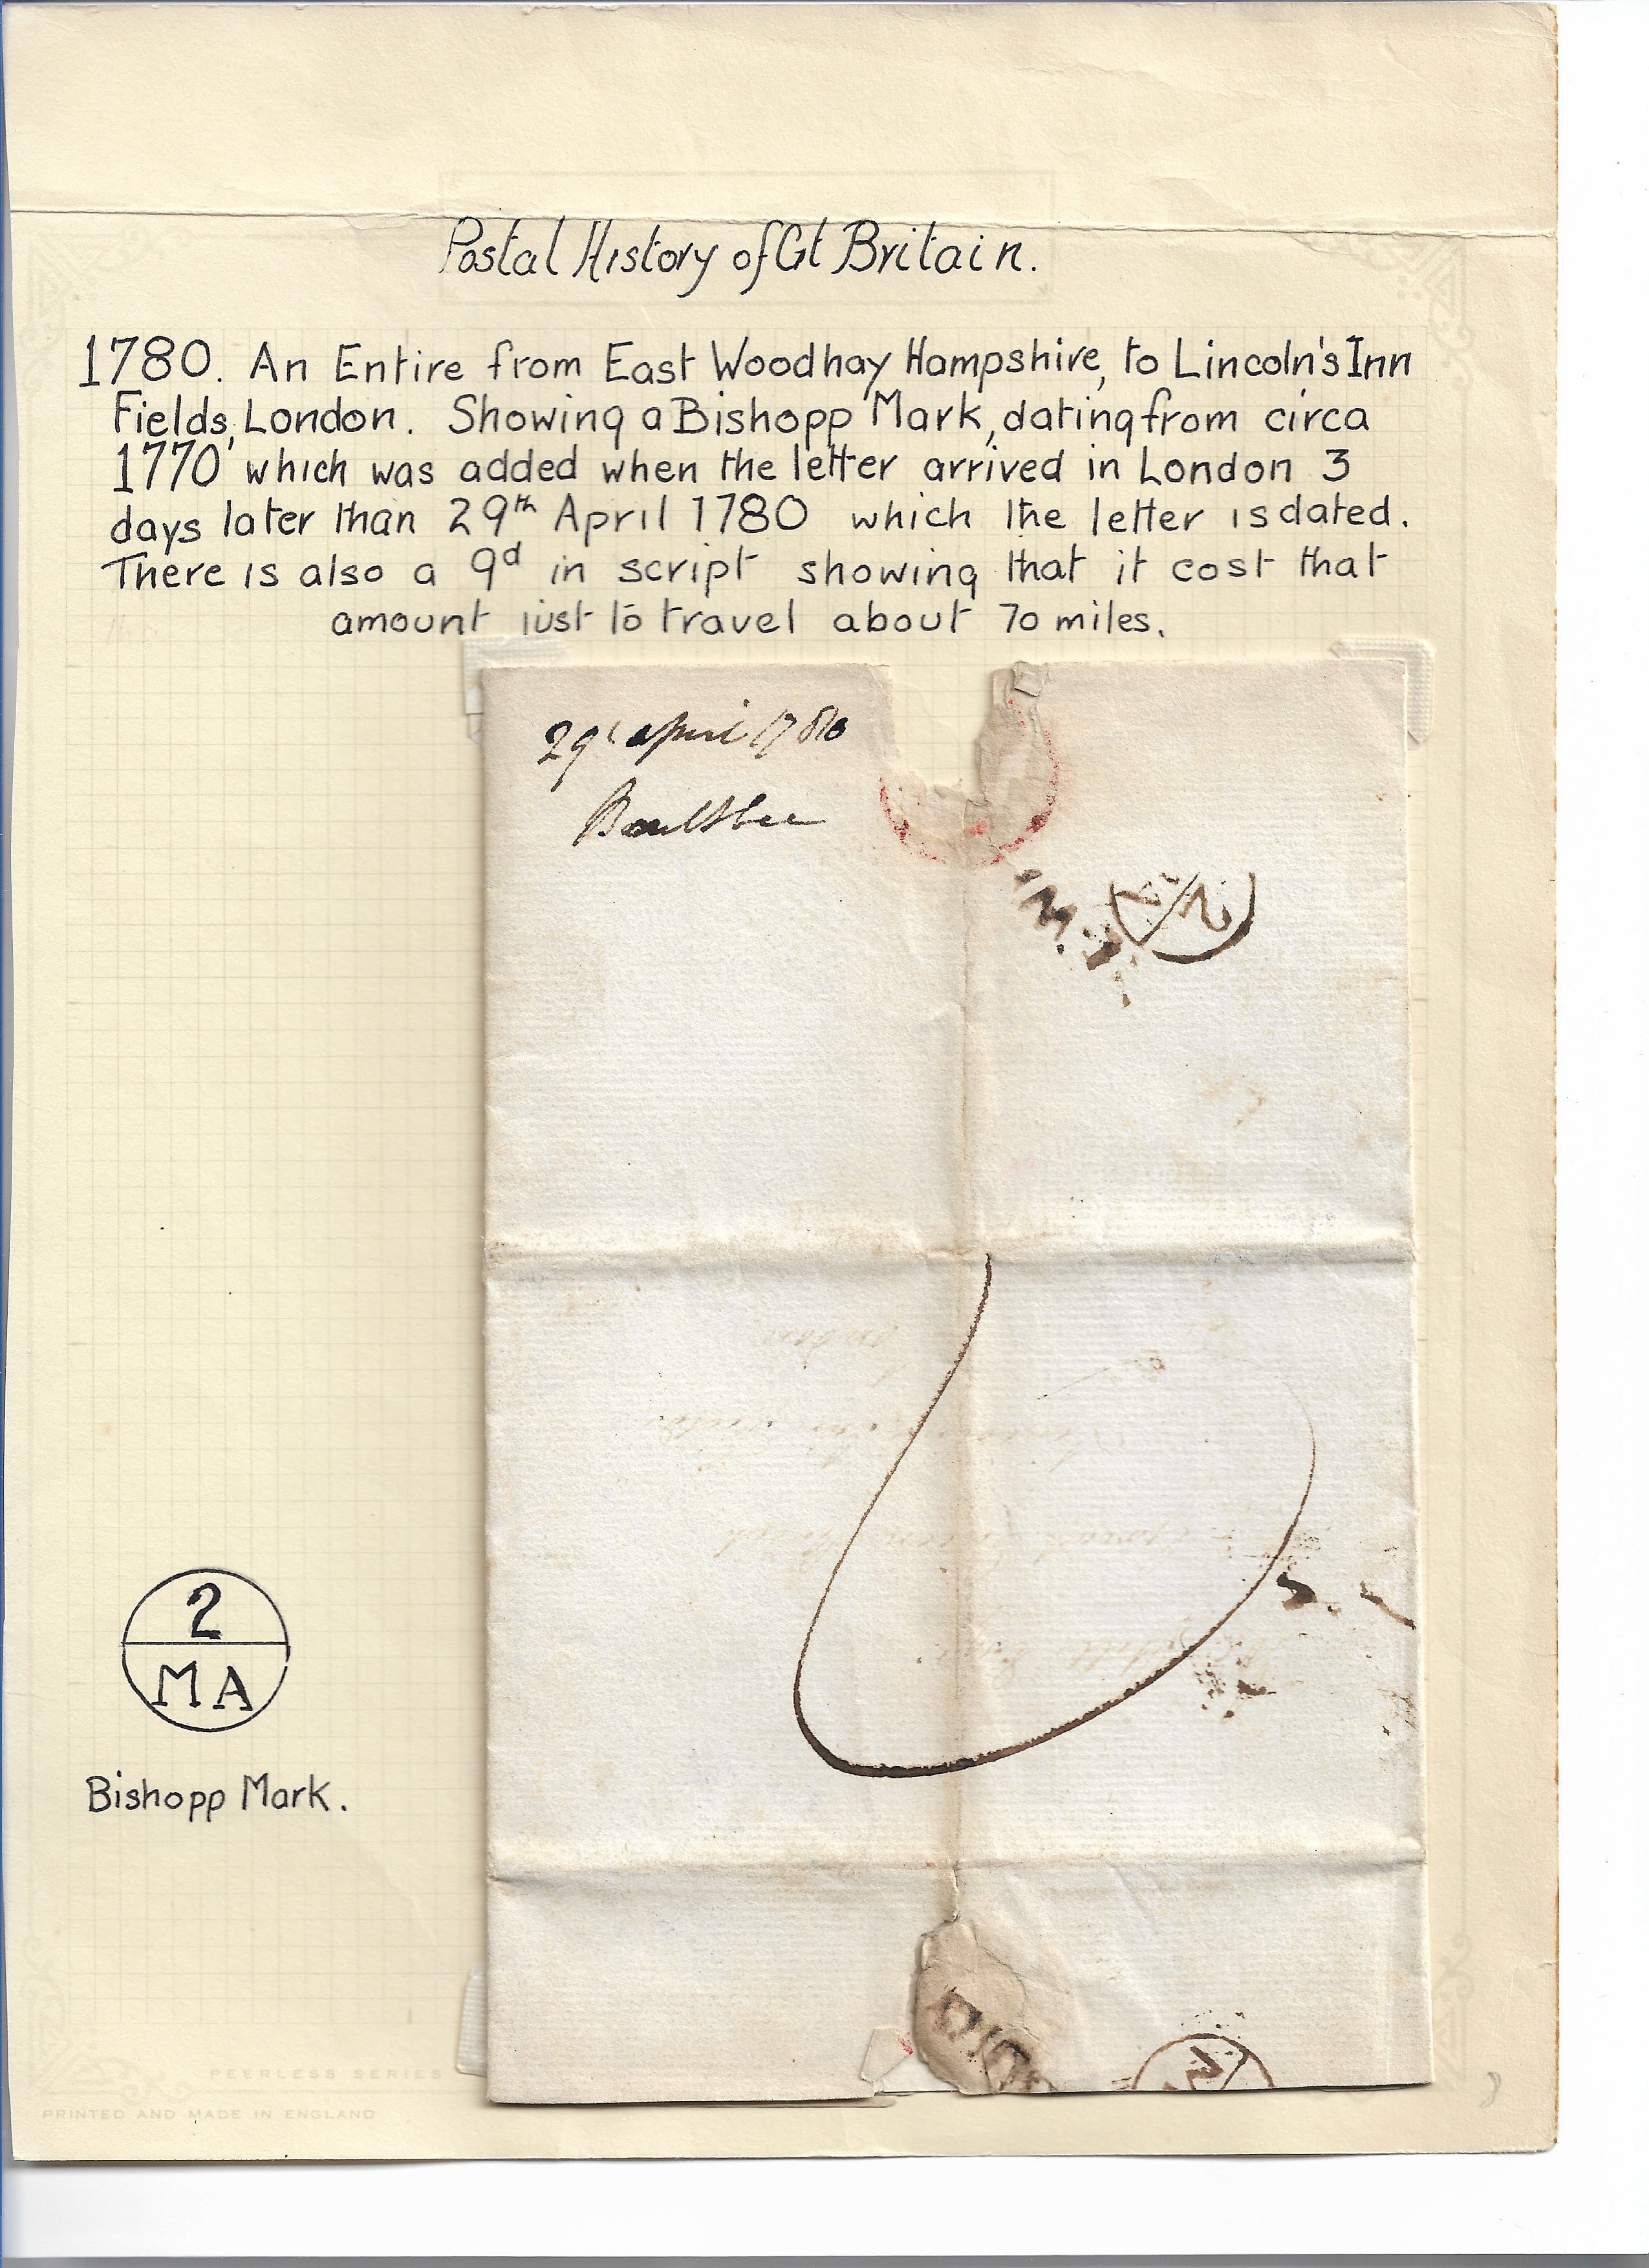 Postal History of Gt Britain.
1780. An Entire from East Woodhay Hampshire, to Lincoln's Inn
Fields, London. Showing a Bishopp Mark, dating from circa
1770 which was added when the letter arrived in London 3
days later than 29th April 1780 which the letter is dated.
There is also a 9d in script showing that it cost that
amount just to travel about 70 miles.
29 april 1780
Boultbee
2
MA
Bishopp Mark.
PEERLESS SERIES
PRINTED AND MADE IN ENGLAND